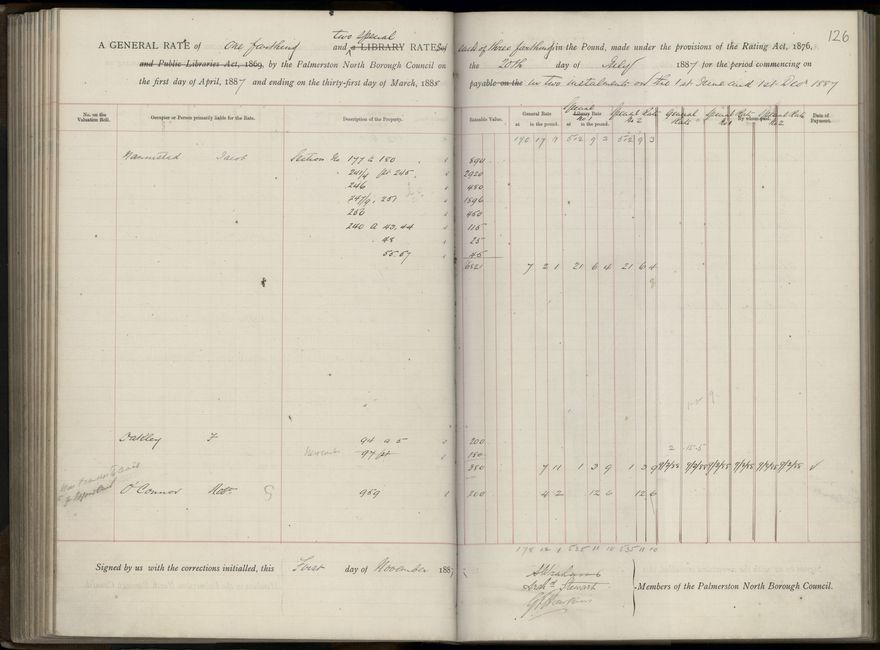 126
A GENERAL RATE of one farthing and two special a LIBRARY RATES of each of three farthings in the Pound, made under the provisions of the Rating Act, 1876,
and Public Libraries Act, 1869, by the Palmerston North Borough Council on the 20th day of July 1887 for the period commencing on
the first day of April, 1887 and ending on the thirty-first day of March, 1888 payable on the in two instalments on the 1st June and 1st Dec 1887
No. on the Valuation Roll. Occupier or Person primarily liable for the Rate. Description of the Property. Rateable Value. General Rate at in the pound. Special Library Rate No 1 at in the pound. Special Rate No 2 General Rate Special Rate No 1 By whom paid. Special Rate No 2 Date of Payment.
170 17 9 512 9 3 512 9 3
Jacob Section No 177 a 180 890
241/4 pt 245 2920
246 480
247/9, 251 1896
256 450
240 a 43, 44 115
48 25
55.57 45
6821 7 2 1 21 6 4 21 6 4
Oakley F 94 a 5 200
97 pt 150
350 7 11 1 3 9 1 3 9
O'Connor Robt. 959 200 4 2 12 6 12 6
178 12 535 11 10 535 11 10
Signed by us with the corrections initialled, this First day of November 1887
Archd Stewart
Members of the Palmerston North Borough Council.